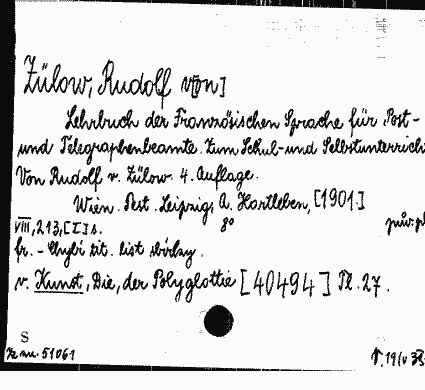 Zülow, Rudolf v[on]
Lehrbuch der Französischen Sprache für Post-
und Telegraphenbeamte. Zum Schul- und Selbstunterricht
Von Rudolf v. Zülow. 4. Auflage.
Wien. Pest. Leipzig, A. Hartleben, [1901]
VIII, 213, [I] s. 8° pův. pl
fr. - Chybí tit. list i vazby.
v. Kunst, Die, der Polyglottie [40494] Tl. 27.
S
51061